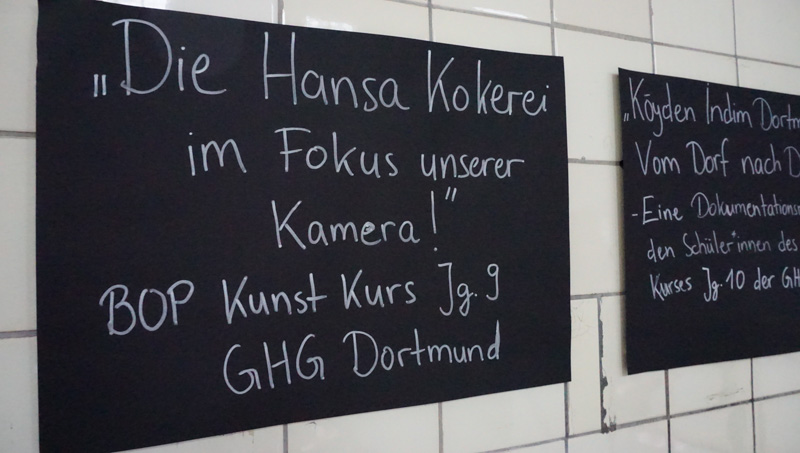 „Die Hansa Kokerei
im Fokus unserer
Kamera!"
BOP Kunst Kurs Jg. 9
GHG Dortmund
„Köyden İndim Dortm
Vom Dorf nach D
-Eine Dokumentations
den Schüler*innen des
Kurses Jg. 10 der GH